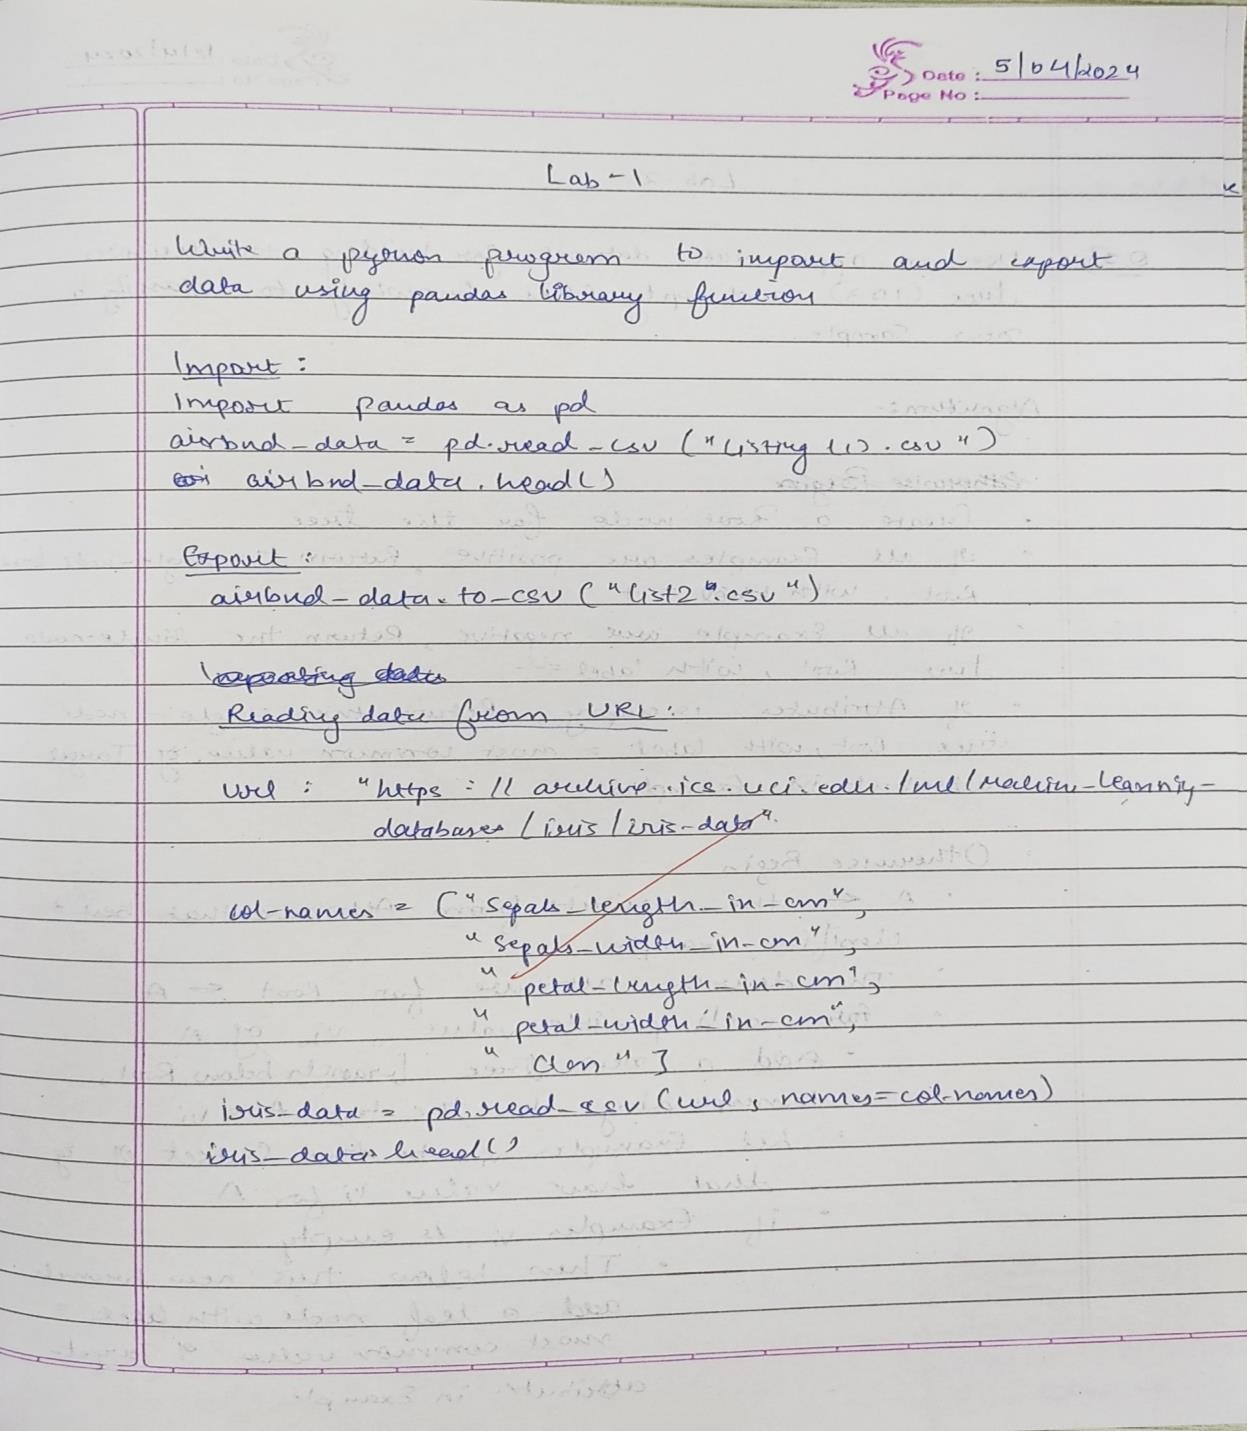 Date : 5/04/2024
Page No :
Lab-1
Write a pyonon program to import and export
data using pandas library function
Import :
Import pandas as pd
airbnd_data = pd.read_csv ("listing (1).csv")
airbnd_data.head()
Export :
airbnd_data.to_csv ("list2".csv")
Reading data from URL:
url : "https://archive.ics.uci.edu./ml/machine-learning-
databases/iris/iris-data".
col-names = ["sepals_length_in_cm",
"sepals_width_in_cm",
"petal_length_in_cm",
"petal_width_in_cm",
"Class"]
iris_data = pd.read_csv (url, names=col-names)
iris_data.head()